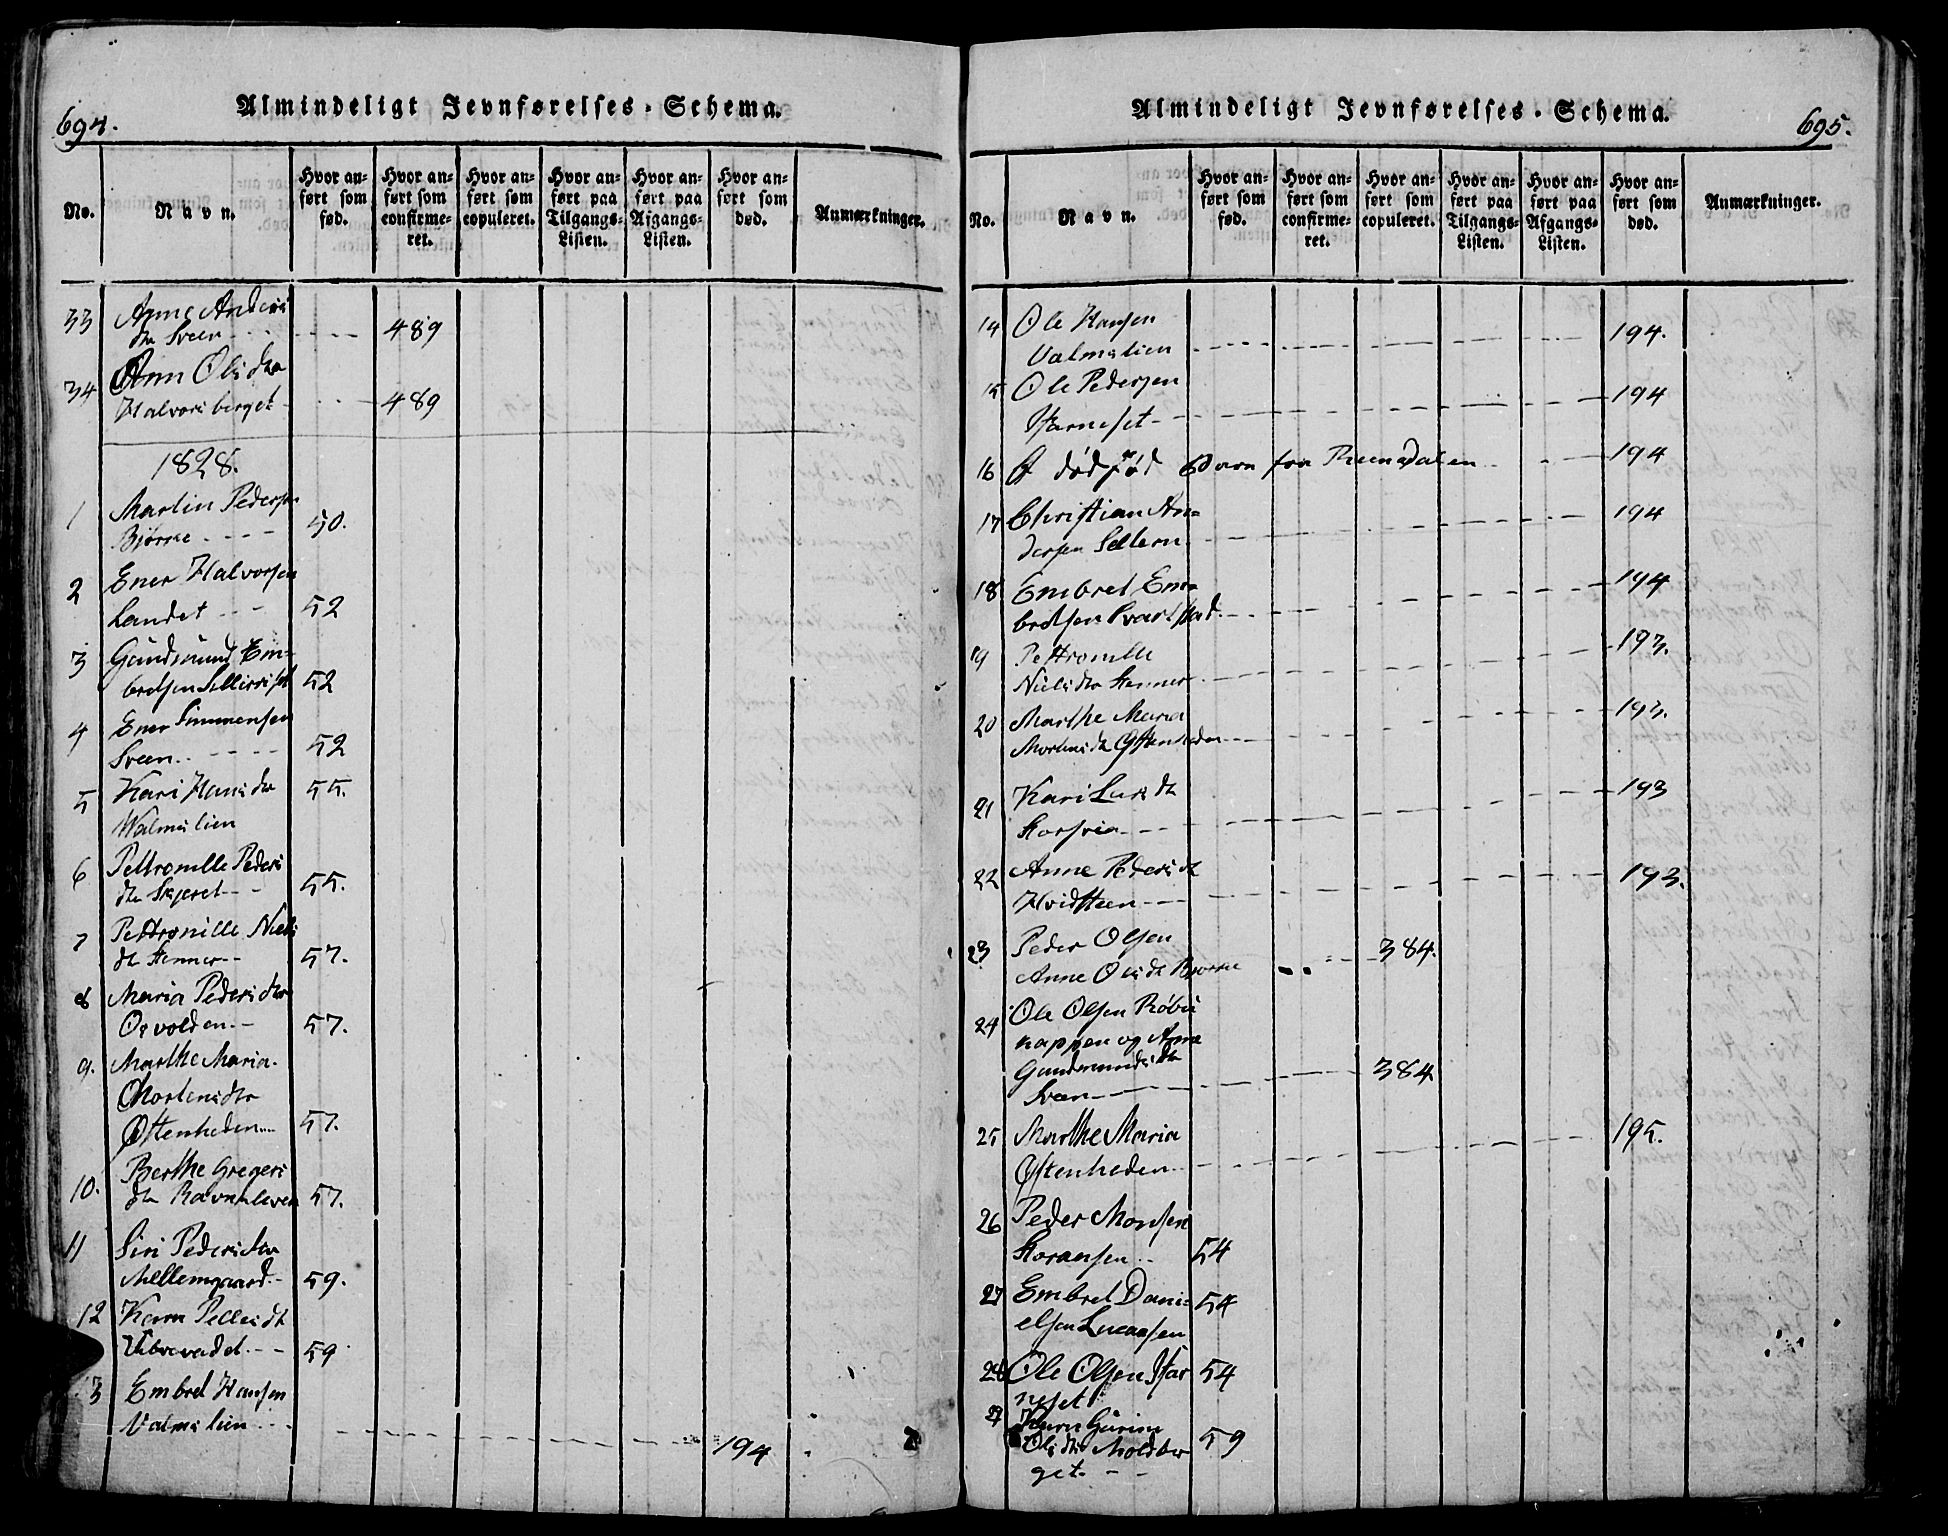 694.
Almindeligt Jevnførelses-Schema.
No.
Navn.
Hvor an=
ført som
fød.
Hvor an=
ført som
confirme=
ret.
Hvor an=
ført som
copuleret.
Hvor an=
ført paa
Tilgangs=
Listen.
Hvor an=
ført paa
Afgangs=
Listen.
Hvor an=
ført som
død.
Anmærkninger.
33 Anne Anders
dtr Sveen 489
34 Ann Olsdtr
Halvorsberget 489
1828.
1 Martin Pedersen
Bjørke 50.
2 Ener Halvorsen
Landet 52
3 Gudmund Em=
bretsen 52
4 Ener Simmensen
Sveen 52
5 Kari Hansdtr 55.
Walmslien
6 Pettronille Peders
dtr Skjeret 55.
7 Pettronille Niels
dtr Stenner 57.
8 Maria Pedersdtr
Osvolden 57.
9. Marthe Maria
Mortensdtr
Østenheden 57.
10. Berthe Gregers
dtr 57.
11 Siri Pedersdtr
Mellemgaard 59.
12 Karn Pellesdtr
59
3 Embret Hansen
Valmslien 194
695.
Almindeligt Jevnførelses-Schema.
No.
Navn.
Hvor an=
ført som
fød.
Hvor an=
ført som
confirme=
ret.
Hvor an=
ført som
copuleret.
Hvor an=
ført paa
Tilgangs=
Listen.
Hvor an=
ført paa
Afgangs=
Listen.
Hvor an=
ført som
død.
Anmærkninger.
14 Ole Hansen
Valmslien 194.
15 Ole Pedersen
194
16 Et dødfød Barn fra 194
17 Christian An=
dersen 194
18 Embret Em=
bretsen Svartstad 194
19 Pettronille
Nielsdtr Stenner 193.
20 Marthe Maria
Mortensdtr Østenheden 193.
21 Kari Larsdtr
193
22 Anne Pedersdtr
Hvidsteen 193.
23 Peder Olsen
Anne Olsdtr Bjørke 384.
24 Ole Olsen
og Anne
Gundmundsdtr
Sveen 384
25 Marthe Maria
Østenheden 195.
26 Peder Monsen
54
27 Embret Dani=
elsen Lucaasen 54
28 Ole Olsen 54
29 Karn
Olsdtr Moldber
get 59